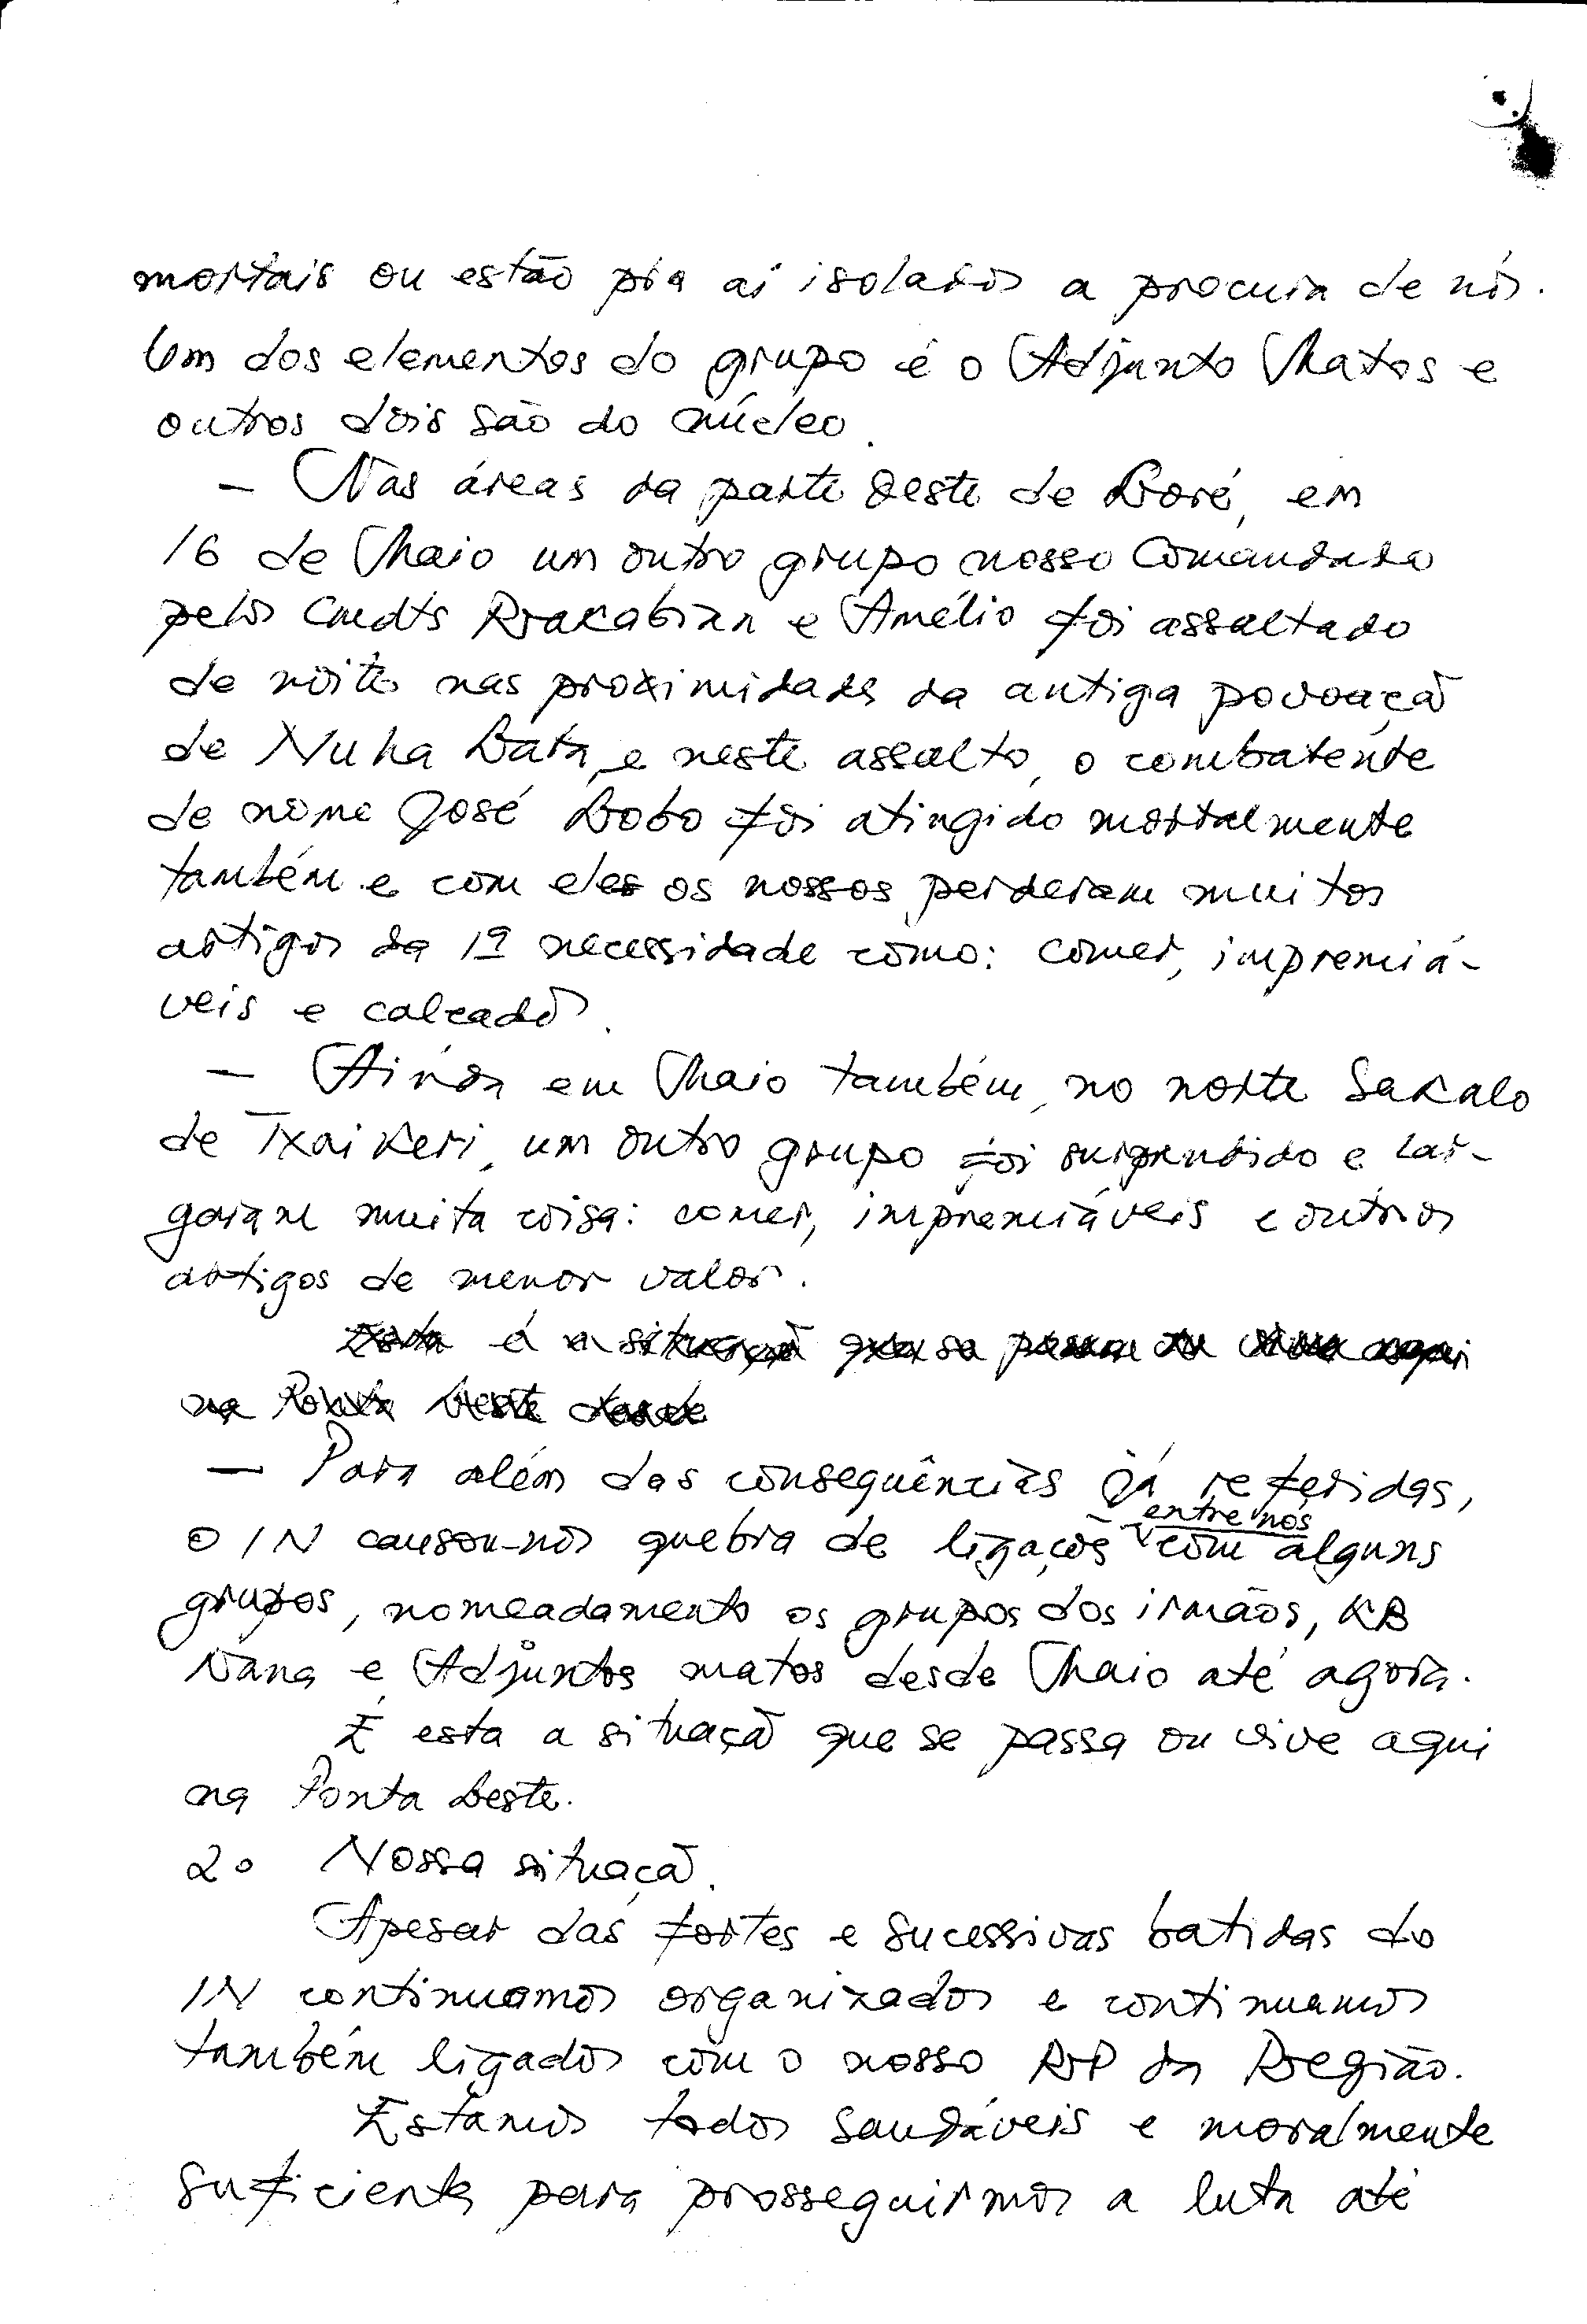 mortais ou estão pra aí isolados a procura de nós.
Um dos elementos do grupo é o Adjunto Matos e
outros dois são do núcleo.
— Nas áreas da parte Oeste de Boré, em
16 de Maio um outro grupo nosso comandado
pelos Cmdts Rrakabian e Amélio foi assaltado
de noite nas proximidades da antiga povoação
de Nuha Bata, e neste assalto, o combatente
de nome José Bobo foi atingido mortalmente
também e com eles os nossos perderam muitos
artigos da 1ª necessidade como: comer, impremiá-
veis e calçados.
— Ainda em Maio também, no norte Sakalo
de Txai Keri, um outro grupo foi surprendido e lar-
garam muita coisa: comer, impremiáveis e outros
artigos de menor valor.
Esta é a situação que se passa ou vive aqui
na Ponta Leste desde
— Para além das consequências já referidas,
entre nós
o IN causou-nos quebra de ligações com alguns
grupos, nomeadamento os grupos dos irmãos, KB
Nana e Adjuntos matos desde Maio até agora.
É esta a situação que se passa ou vive aqui
na Ponta Leste.
2. Nossa situação.
Apesar das fortes e sucessivas batidas do
IN continuamos organizados e continuamos
também ligados com o nosso RP da Região.
Estamos todos saudáveis e moralmente
suficientes para prosseguirmos a luta até